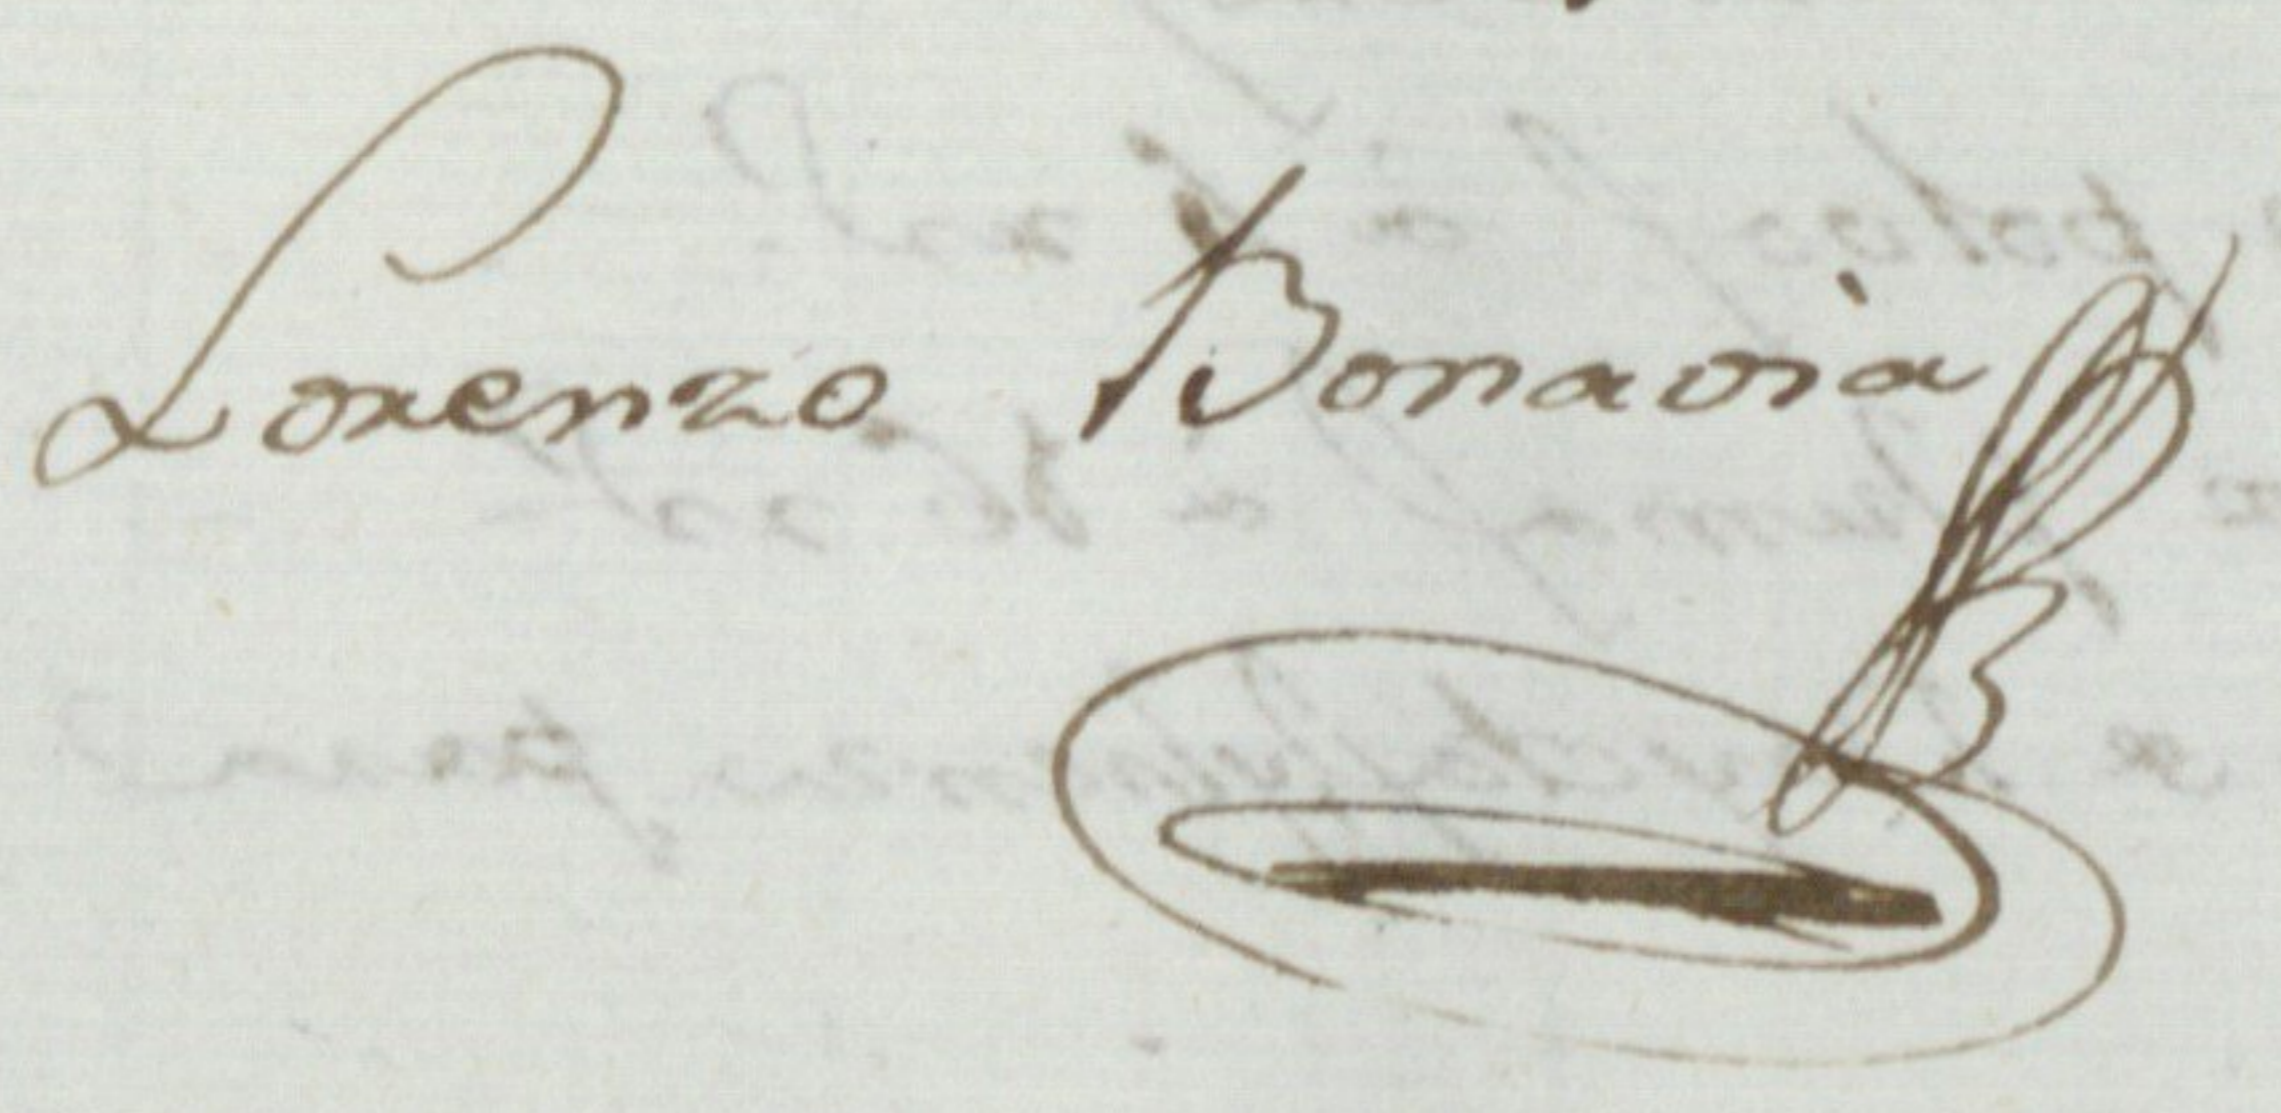 Lorenzo Bonavia